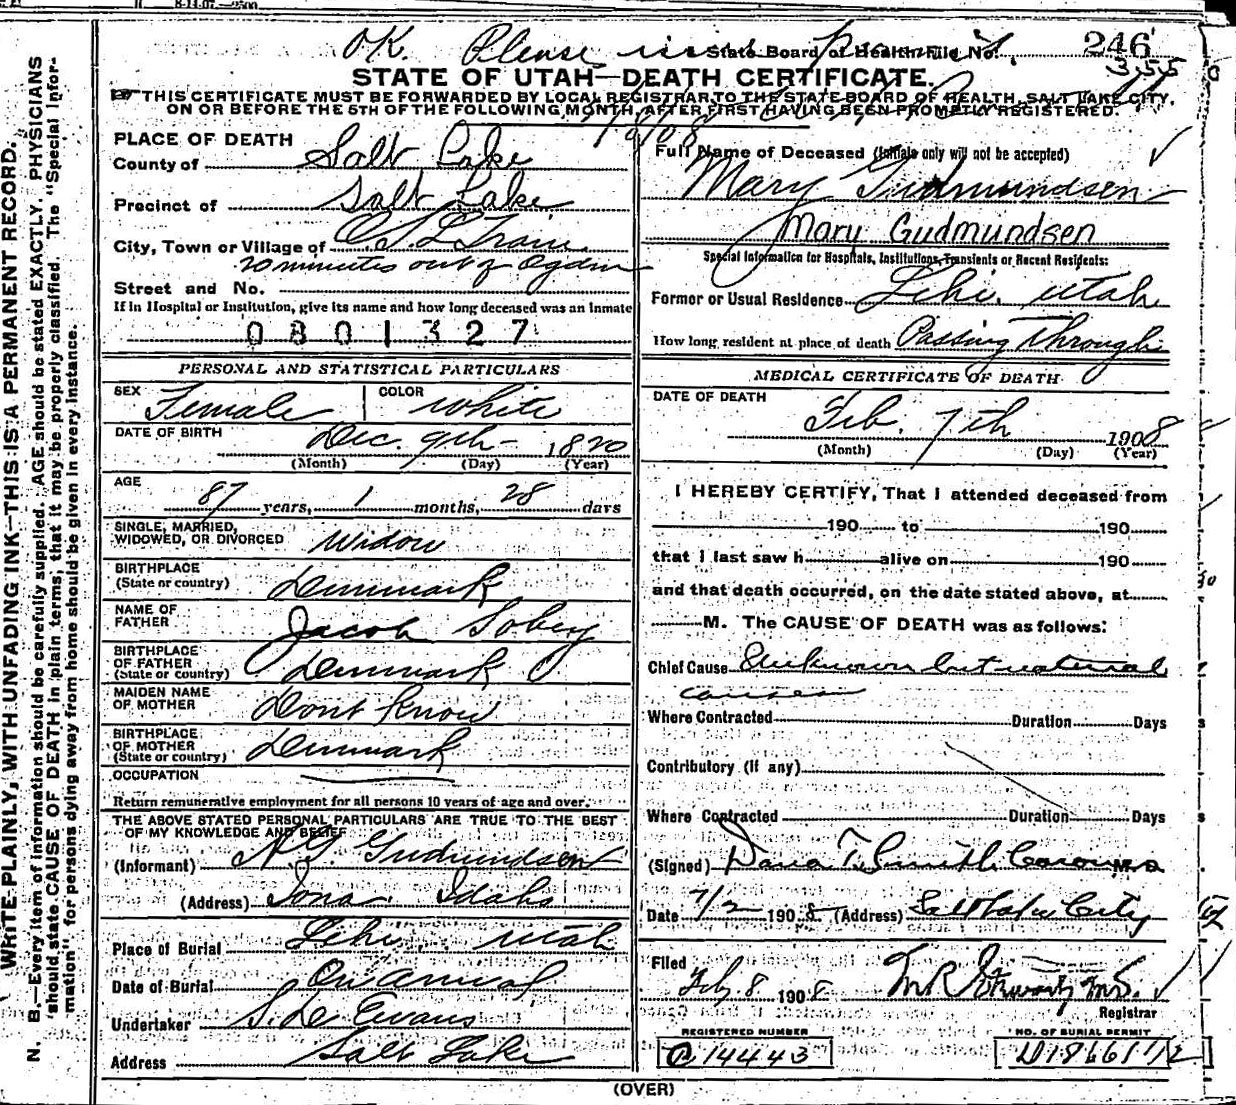 8-14-07.—2500
OK. Please State Board of Health File No. 246
355
STATE OF UTAH—DEATH CERTIFICATE.
THIS CERTIFICATE MUST BE FORWARDED BY LOCAL REGISTRAR TO THE STATE BOARD OF HEALTH, SALT LAKE CITY,
ON OR BEFORE THE 5TH OF THE FOLLOWING MONTH, AFTER FIRST HAVING BEEN PROMPTLY REGISTERED.
WRITE PLAINLY, WITH UNFADING INK—THIS IS A PERMANENT RECORD.
N. B.—Every item of information should be carefully supplied. AGE should be stated EXACTLY. PHYSICIANS
should state CAUSE OF DEATH in plain terms, that it may be properly classified. The "Special Infor-
mation" for persons dying away from home should be given in every instance.
PLACE OF DEATH
County of Salt Lake
Precinct of Salt Lake
City, Town or Village of O S L Train
20 minutes out of Ogden
Street and No.
If in Hospital or Institution, give its name and how long deceased was an Inmate
0801327
PERSONAL AND STATISTICAL PARTICULARS
SEX Female COLOR White
DATE OF BIRTH Dec. 9th - 1820
(Month) (Day) (Year)
AGE
87 years, 1 months, 28 days
SINGLE, MARRIED,
WIDOWED, OR DIVORCED Widow
BIRTHPLACE
(State or country) Denmark
NAME OF
FATHER Jacob Soberg
BIRTHPLACE
OF FATHER
(State or country) Denmark
MAIDEN NAME
OF MOTHER Dont Know
BIRTHPLACE
OF MOTHER
(State or country) Denmark
OCCUPATION
Return remunerative employment for all persons 10 years of age and over.
THE ABOVE STATED PERSONAL PARTICULARS ARE TRUE TO THE BEST
OF MY KNOWLEDGE AND BELIEF
(Informant) Gudmundsen
(Address) Iona Idaho
Place of Burial Lehi, Utah
Date of Burial On arrival
Undertaker S. D. Evans
Address Salt Lake
Full Name of Deceased (Initials only will not be accepted)
Mary Gudmundsen
Mary Gudmundsen
Special Information for Hospitals, Institutions, Transients or Recent Residents:
Former or Usual Residence Lehi, Utah
How long resident at place of death Passing Through
MEDICAL CERTIFICATE OF DEATH
DATE OF DEATH
Feb. 7th 1908
(Month) (Day) (Year)
I HEREBY CERTIFY, That I attended deceased from
190 to 190
that I last saw h alive on 190
and that death occurred, on the date stated above, at
M. The CAUSE OF DEATH was as follows:
Chief Cause Unknown but natural
causes
Where Contracted Duration Days
Contributory (if any)
Where Contracted Duration Days
(Signed) Dana T. Smith Coroner M.D.
Date 7/2 1908 (Address) Salt Lake City
Filed
Feb 8 1908
Registrar
REGISTERED NUMBER
14443
NO. OF BURIAL PERMIT
(OVER)